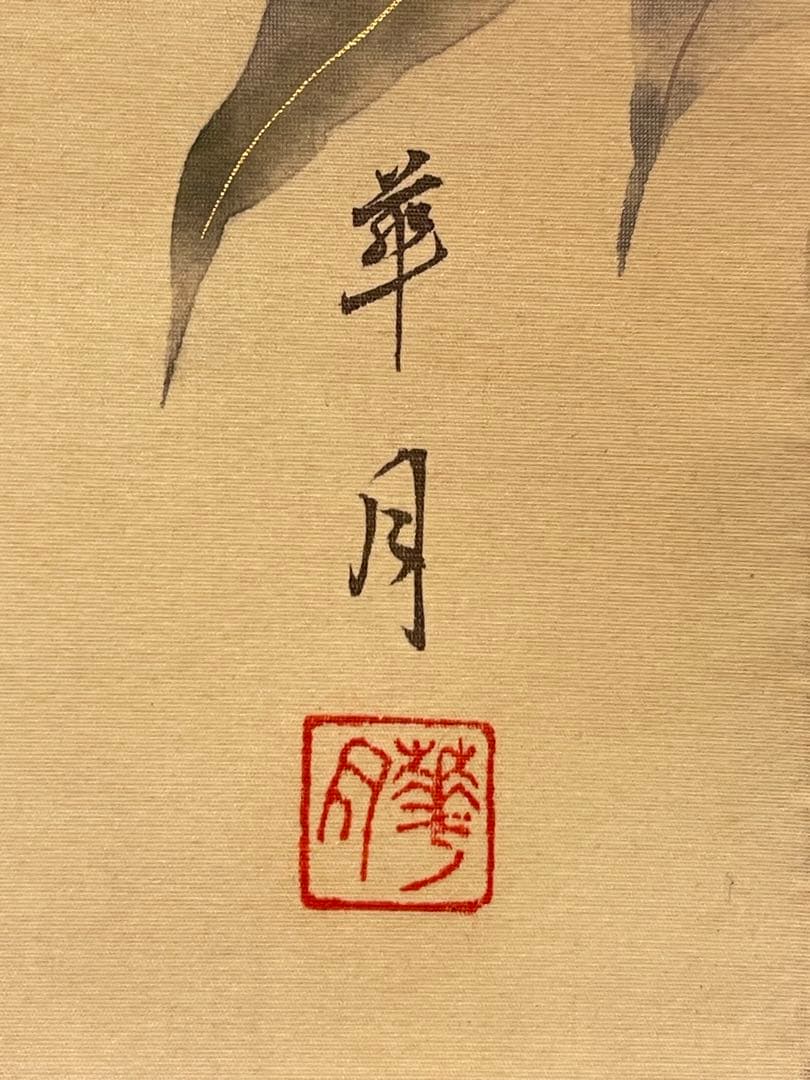 華月
華月